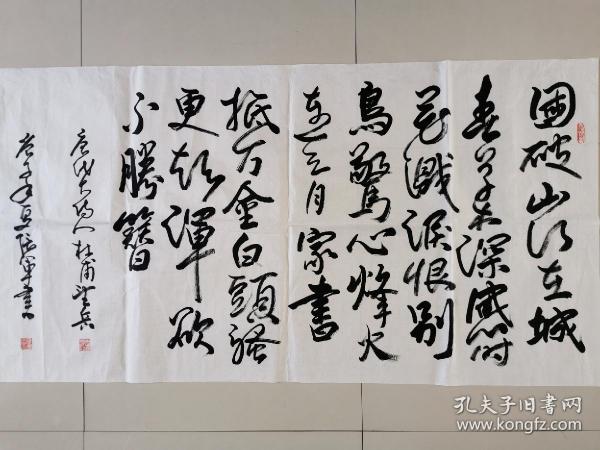 國破山河在城
春草木深感時
花濺淚恨別
鳥驚心烽火
連三月家書
抵万金白頭搔
更短渾欲
不勝簪
唐代大诗人杜甫望岳
夏 書
孔夫子旧書网
www.kongfz.com